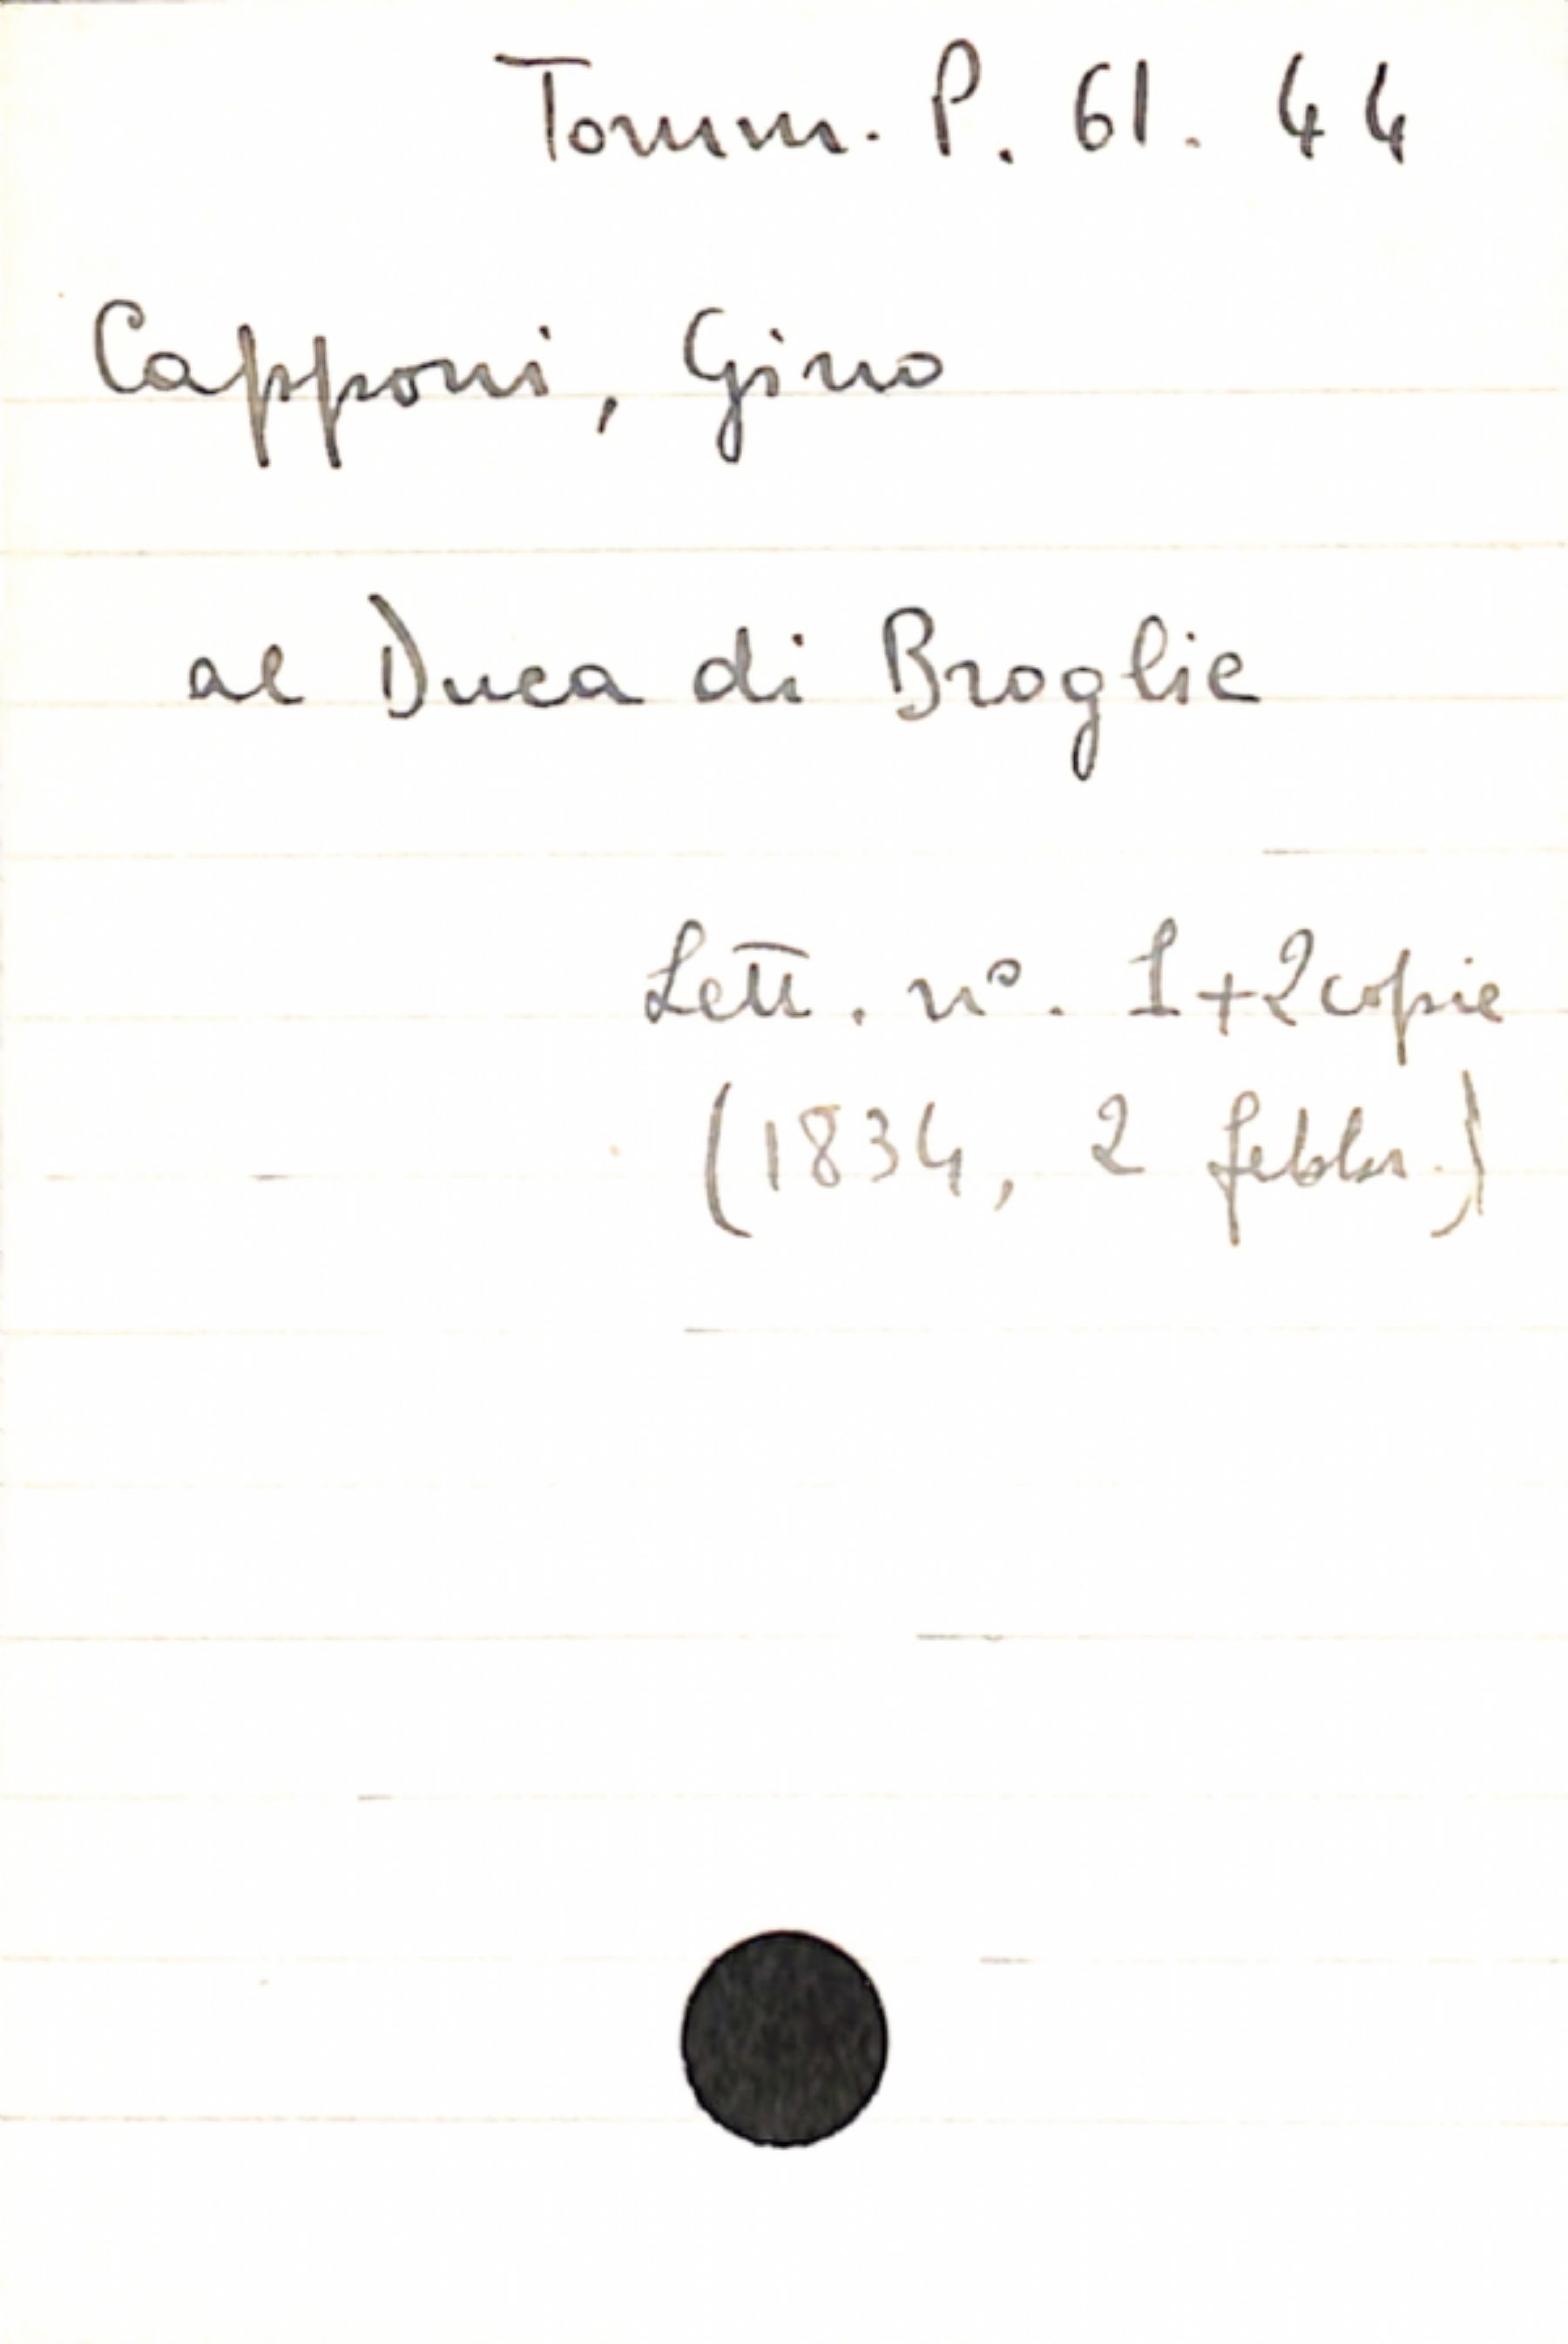 Tomm. P. 61. 44
Capponi, Gino
al Duca di Broglie
Lett. n°. 1+2 copie
(1834, 2 febbr.)